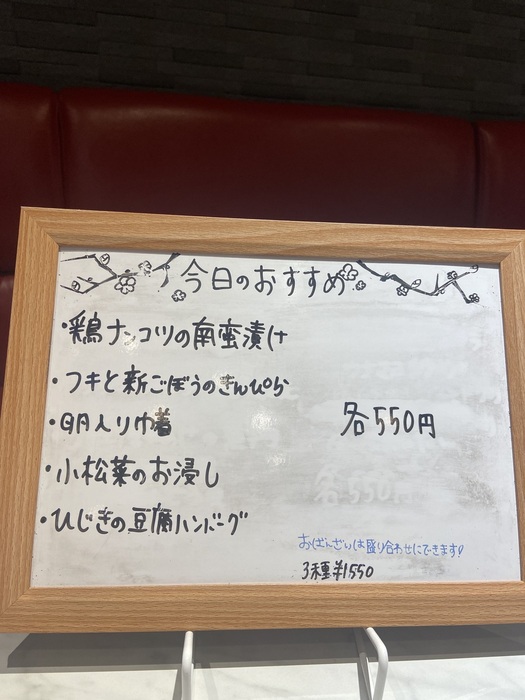 今日のおすすめ
・鶏ナンコツの南蛮漬け
・フキと新ごぼうのきんぴら
・明入り巾着
・小松菜のお浸し
・ひじきの豆腐ハンバーグ
各550円
各550円
おばんざいは盛り合わせにできます!
3種¥1550